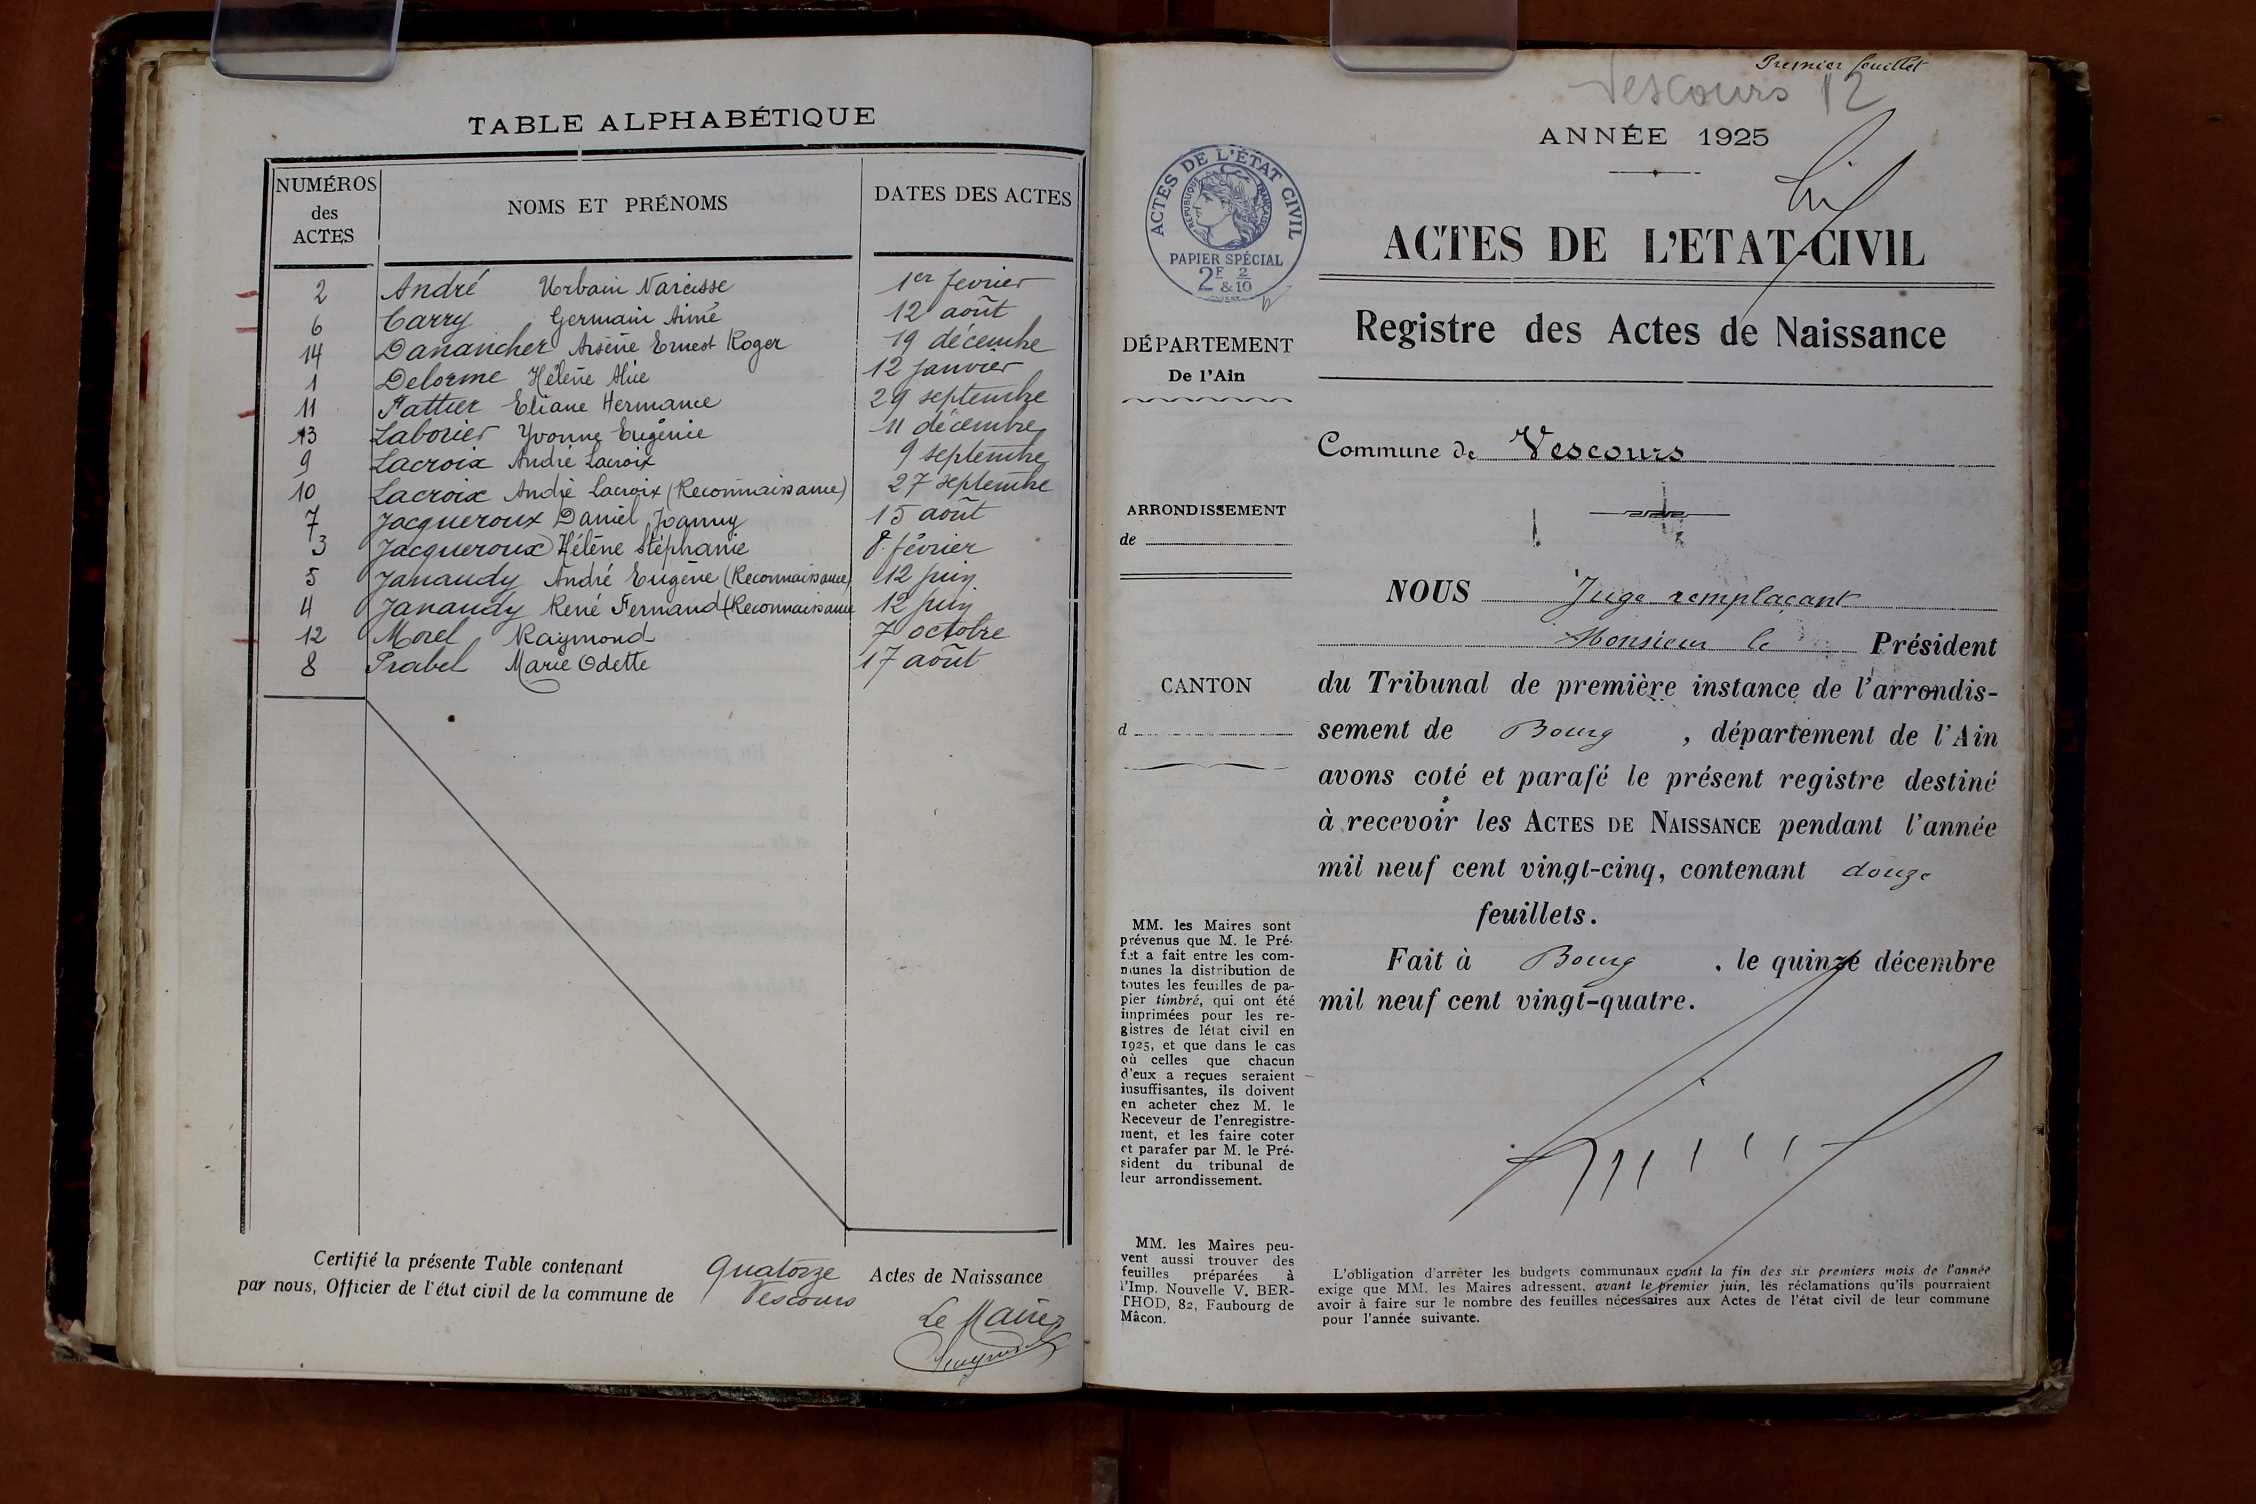 TABLE ALPHABÉTIQUE
NUMÉROS des ACTES
NOMS ET PRÉNOMS
DATES DES ACTES
2 André Urbain Narcisse 1er fevrier
6 Carry Germain Aimé 12 août
14 Danancher Arsène Ernest Roger 19 décembre
1 Delorme Hélène Alice 12 janvier
11 Fattier Eliane Hermance 29 septembre
13 Laborier Yvonne Eugénie 11 décembre
9 Lacroix André Lacroix 9 septembre
10 Lacroix André Lacroix (Reconnaissance) 27 septembre
7 Jacqueroux Daniel Joanny 15 août
3 Jacqueroux Hélène Stéphanie 8 février
5 Janaudy André Eugène (Reconnaissance) 12 juin
4 Janaudy René Fernand (Reconnaissance 12 juin
12 Morel Raymond 7 octobre
8 Prabel Marie Odette 17 août
Certifié la présente Table contenant Quatorze Actes de Naissance
par nous, Officier de l'état civil de la commune de Vescours
Le Maire
Premier feuillet
Vescours 12
ANNÉE 1925
ACTES DE L'ÉTAT CIVIL
RÉPUBLIQUE FRANÇAISE
PAPIER SPÉCIAL
2F & 2/10
ACTES DE L'ETAT-CIVIL
Registre des Actes de Naissance
DÉPARTEMENT
De l'Ain
Commune de Vescours
ARRONDISSEMENT
de
CANTON
d
NOUS Juge remplaçant
Monsieur le Président
du Tribunal de première instance de l'arrondis-
sement de Bourg , département de l'Ain
avons coté et parafé le présent registre destiné
à recevoir les ACTES DE NAISSANCE pendant l'année
mil neuf cent vingt-cinq, contenant douze
feuillets.
Fait à Bourg , le quinze décembre
mil neuf cent vingt-quatre.
MM. les Maires sont
prévenus que M. le Pré-
fet a fait entre les com-
munes la distribution de
toutes les feuilles de pa-
pier timbré, qui ont été
imprimées pour les re-
gistres de létat civil en
1925, et que dans le cas
où celles que chacun
d'eux a reçues seraient
insuffisantes, ils doivent
en acheter chez M. le
Receveur de l'enregistre-
ment, et les faire coter
et parafer par M. le Pré-
sident du tribunal de
leur arrondissement.
MM. les Maires peu-
vent aussi trouver des
feuilles préparées à
l'Imp. Nouvelle V. BER-
THOD, 82, Faubourg de
Mâcon.
L'obligation d'arrêter les budgets communaux avant la fin des six premiers mois de l'année
exige que MM. les Maires adressent, avant le premier juin, les réclamations qu'ils pourraient
avoir à faire sur le nombre des feuilles nécessaires aux Actes de l'état civil de leur commune
pour l'année suivante.